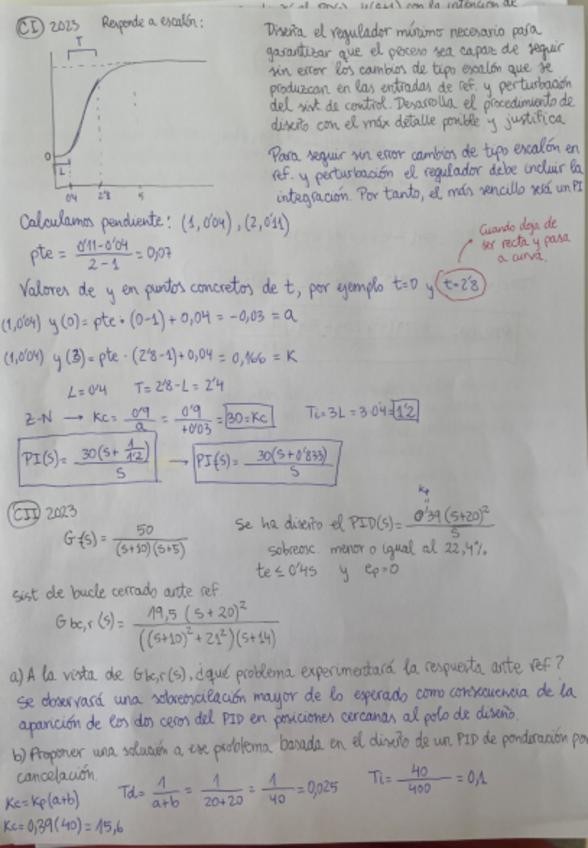 con la intención de
CI 2023 Responde a escalón:
T
0
L
0'4 2'8 5
Diseña el regulador mínimo necesario para
garantizar que el proceso sea capaz de seguir
sin error los cambios de tipo escalón que se
produzcan en las entradas de ref. y perturbación
del sist de control. Desarrolla el procedimiento de
diseño con el máx detalle posible y justifica
Para seguir sin error cambios de tipo escalón en
ref. y perturbación el regulador debe incluir la
integración. Por tanto, el más sencillo será un PI
Calculamos pendiente: (1, 0'04), (2, 0'11)
pte = (0'11 - 0'04) / (2 - 1) = 0,07
Cuando deja de
ser recta y pasa
a curva.
Valores de y en puntos concretos de t, por ejemplo t=0 y t=2'8
(1,0'04) y(0) = pte · (0-1) + 0,04 = -0,03 = a
(1,0'04) y(3) = pte · (2'8-1) + 0,04 = 0,166 = K
L = 0'4 T = 2'8 - L = 2'4
Z-N → Kc = 0'9 / a = 0'9 / +0'03 = 30 = Kc Ti = 3L = 3·0'4 = 1'2
PI(s) = 30(s + 1/1'2) / s → PI(s) = 30(s + 0'833) / s
CII 2023
G(s) = 50 / (s+10)(s+5)
Kp
"
Se ha diseño el PID(s) = 0'39 (s+20)² / s
sobreosc. menor o igual al 22,4%
te ≤ 0'4s y ep = 0
sist de bucle cerrado ante ref.
Gbc,r (s) = 19,5 (s + 20)² / ((s+10)² + 21²)(s+14)
a) A la vista de Gbc,r(s), ¿qué problema experimentará la respuesta ante ref?
Se observará una sobreoscilación mayor de lo esperado como consecuencia de la
aparición de los dos ceros del PID en posiciones cercanas al polo de diseño.
b) Proponer una solución a ese problema basada en el diseño de un PID de ponderación por
cancelación.
Kc = Kp(a+b) Td = 1 / (a+b) = 1 / (20+20) = 1 / 40 = 0,025 Ti = 40 / 400 = 0,1
Kc = 0,39(40) = 15,6